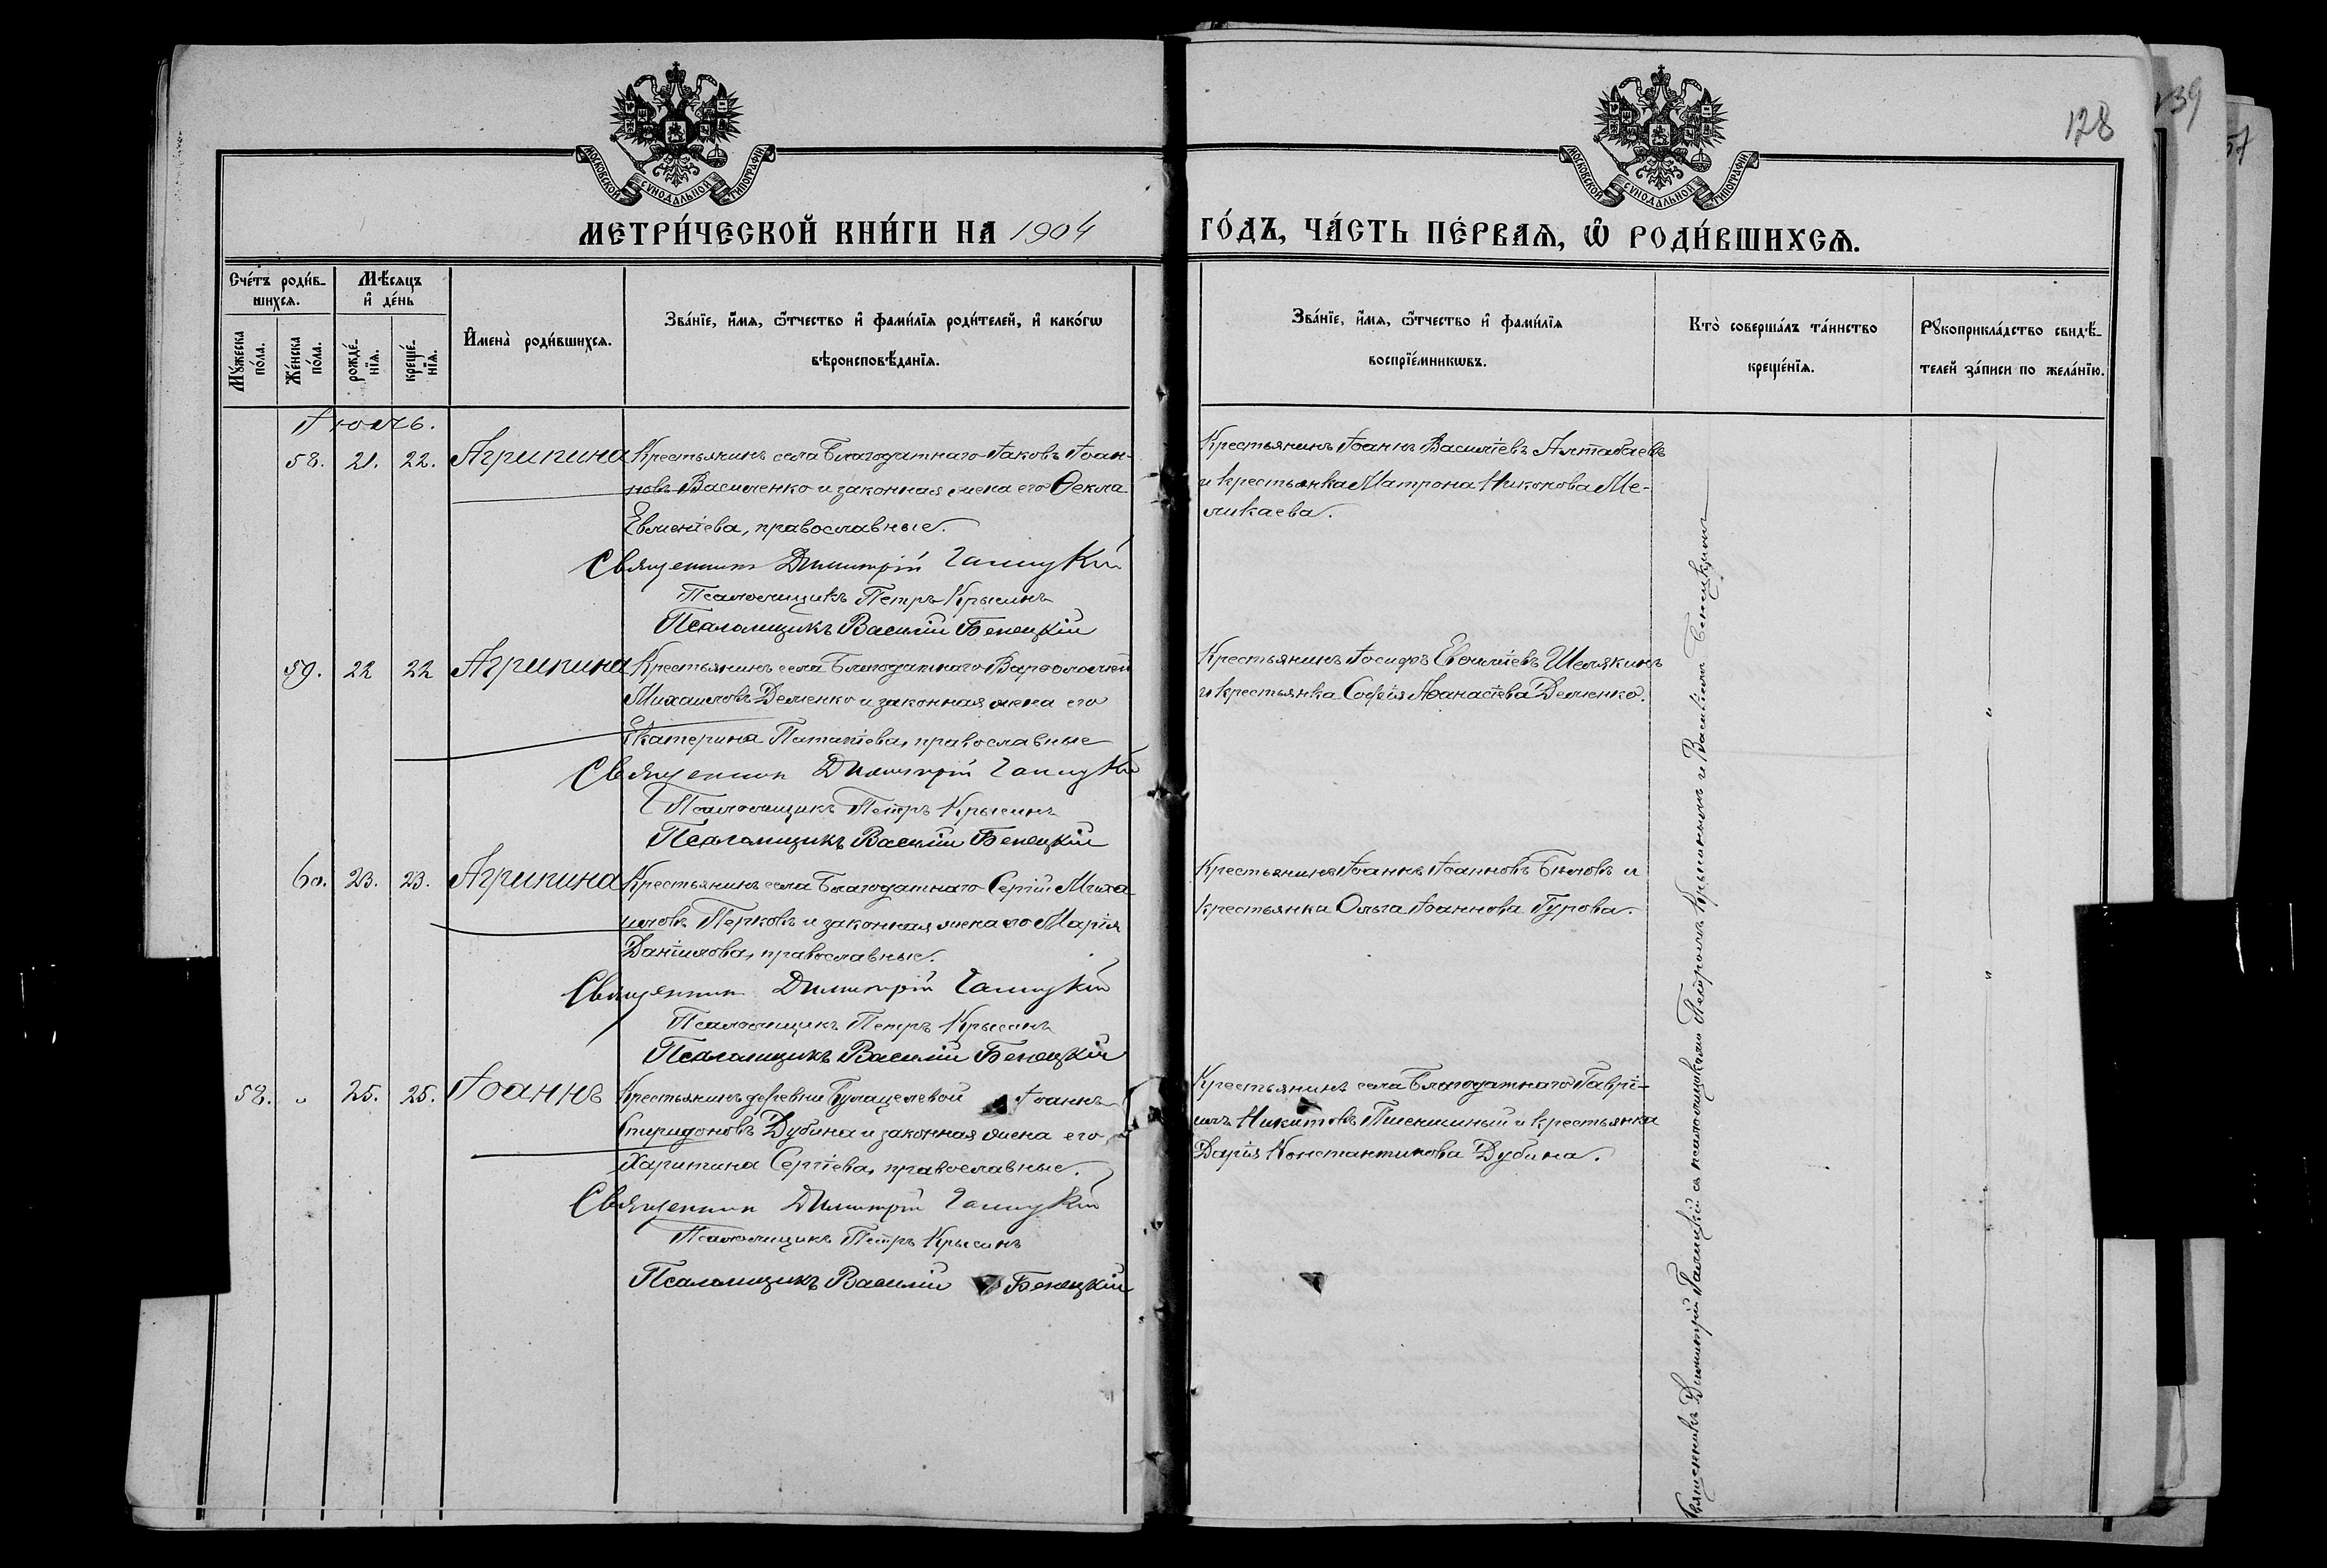 128
39
57
МОСКОВСКОЙ СѴНОДАЛЬНОЙ ТИПОГРАФІИ
МОСКОВСКОЙ СѴНОДАЛЬНОЙ ТИПОГРАФІИ
МЕТРИ́ЧЕСКОЙ КНИ́ГИ НА 1904
ГО́ДЪ, ЧА́СТЬ ПЕ́РВАѦ, Ѡ҆ РОДИ́ВШИХСѦ.
Сче́тъ роди́в-
шихсѧ.
Мѣ́сѧцъ
и҆ де́нь
Мꙋ́жеска
по́ла.
Же́нска
по́ла.
рожде́-
нїѧ.
креще́-
нїѧ.
И҆мена̀ роди́вшихсѧ.
Зва́нїе, и҆́мѧ, ѻ҆́тчество и҆ фами́лїѧ роди́телей, и҆ како́гѡ
вѣроисповѣ́данїѧ.
Зва́нїе, и҆́мѧ, ѻ҆́тчество и҆ фами́лїѧ
воспрїе́мникѡвъ.
Кто̀ соверша́лъ та́инство
креще́нїѧ.
Рꙋкоприкла́дство свидѣ́-
телей за́писи по жела́нїю.
Іюнь.
58. 21. 22. Агрипина Крестьянинъ села Благодатнаго Іаковъ Іоан-
новъ Василенко и законная жена его Ѳекла
Евменіева, православные.
Священникъ Димитрій Галицкій
Псаломщикъ Петръ Крысинъ
Псаломщикъ Василій Бенецкій
Крестьянинъ Іоаннъ Василіевъ Алтабаевъ
и крестьянка Матрона Никонова Ме-
ликаева.
59. 22 22 Агрипина Крестьянинъ села Благодатнаго Варѳоломей
Михаиловъ Деменко и законная жена его
Екатерина Патапіева, православные
Священник Димитрій Галицкій
Псаломщикъ Петръ Крысинъ
Псаломщикъ Василій Бенецкій
Крестьянинъ Іосифъ Шелякинъ
и крестьянка Софія Аѳанасіева Деменко.
60. 23. 23. Агрипина Крестьянинъ села Благодатнаго Сергій Миха-
иловъ Перковъ и законная жена его Марія
Даніилова, православные.
Священник Димитрій Галицкій
Псаломщикъ Петръ Крысинъ
Псаломщикъ Василій Бенецкій
Крестьянинъ Іоаннъ Іоанновъ Бѣловъ и
крестьянка Ольга Іоаннова Гурова.
58. " 25. 25. Іоаннъ Крестьянинъ деревни Іоаннъ
Спиридоновъ Дубина и законная жена его
Харитина Сергіева, православные.
Священник Димитрій Галицкій
Псаломщикъ Петръ Крысинъ
Псаломщикъ Василій Бенецкій
Крестьянинъ села Благодатнаго Гаврі-
илъ Никитовъ Пшеничный и крестьянка
Дарія Константинова Дубина.
Священникъ Димитрій Галицкій съ псаломщиками Петромъ Крысинымъ и Василіемъ Бенецкимъ